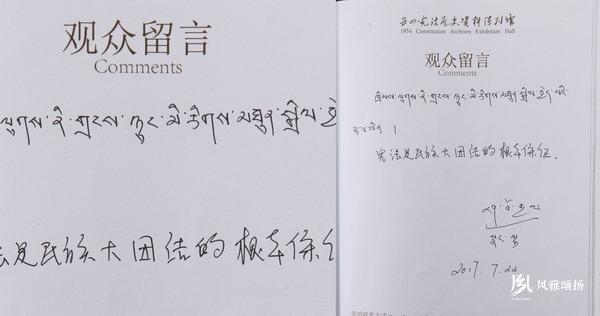 观众留言
Comments
ལུགས་ནི་གྲངས་ཉུང་མི་རིགས་མཐུན་སྒྲིལ་
法是民族大团结的根本保证
五四宪法历史资料陈列馆
1954 Constitution Archives Exhibition Hall
观众留言
Comments
ལུགས་ནི་གྲངས་ཉུང་མི་རིགས་མཐུན་སྒྲིལ་
宪法是民族大团结的根本保证.
2017.7.22
风雅颂扬